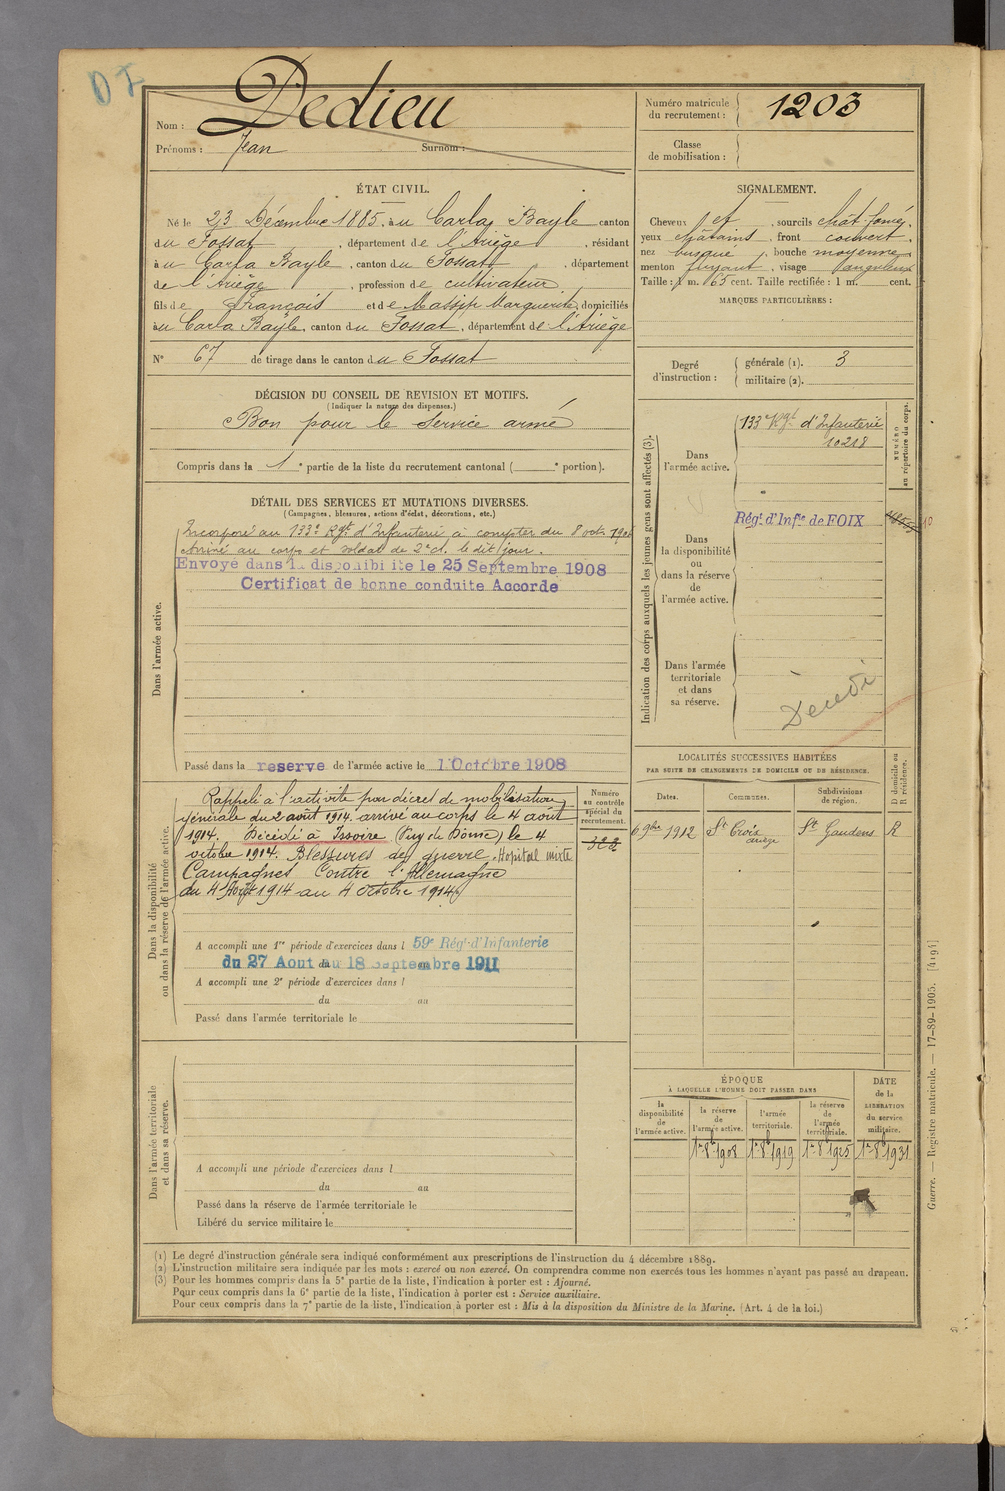 DI
Nom : Dedieu
Prénoms : Jean Surnom :
Numéro matricule du recrutement : 1203
Classe de mobilisation :
ÉTAT CIVIL.
Né le 23 Décembre 1885, à au Carla Bayle canton
du Fossat, département de l'Ariège, résidant
à au Carla Bayle, canton du Fossat, département
de l'Ariège, profession de cultivateur
fils de François et de Massip Marguerite, domiciliés
à au Carla Bayle, canton du Fossat, département de l'Ariège
N° 67 de tirage dans le canton du Fossat
SIGNALEMENT.
Cheveux et, sourcils chât. foncé,
yeux châtains, front couvert,
nez busqué, bouche moyenne,
menton fuyant, visage anguleux
Taille : 1 m. 65 cent. Taille rectifiée : 1 m. cent.
MARQUES PARTICULIÈRES :
Degré d'instruction : générale (1). 3
militaire (2).
DÉCISION DU CONSEIL DE REVISION ET MOTIFS.
(Indiquer la nature des dispenses.)
Bon pour le service armé
Compris dans la 1e partie de la liste du recrutement cantonal ( e portion).
DÉTAIL DES SERVICES ET MUTATIONS DIVERSES.
(Campagnes, blessures, actions d'éclat, décorations, etc.)
Dans l'armée active.
Incorporé au 133e Rgt d'Infanterie à compter du 8 octe 1906
Arrivé au corps et soldat de 2e cl. le dit jour.
Envoyé dans la disponibilite le 25 Septembre 1908
Certificat de bonne conduite Accorde
Passé dans la reserve de l'armée active le 1 Octobre 1908
Indication des corps auxquels les jeunes gens sont affectés (3).
Dans l'armée active.
133e Rgt d'Infanterie
10218
NUMÉRO au répertoire du corps.
Régt d'Infie de FOIX
Dans la disponibilité ou dans la réserve de l'armée active.
Dans l'armée territoriale et dans sa réserve.
Dans la disponibilité ou dans la réserve de l'armée active.
Rappelé à l'activité par décret de mobilisation
générale du 2 août 1914. arrivé au corps le 4 août
1914. Décédé à Issoire (Puy de Dôme) le 4
octobre 1914. Blessures de guerre. Hopital mixte
Campagnes Contre l'Allemagne
du 4 Août 1914 au 4 octobre 1914
Numéro au contrôle spécial du recrutement.
322
A accompli une 1re période d'exercices dans l 59e Régt d'Infanterie
du 27 Aout au 18 Septembre 1911
A accompli une 2e période d'exercices dans l
du au
Passé dans l'armée territoriale le
LOCALITÉS SUCCESSIVES HABITÉES
PAR SUITE DE CHANGEMENTS DE DOMICILE OU DE RÉSIDENCE.
Dates. Communes. Subdivisions de région. D domicile ou R résidence.
6 9bre 1912 St Croix St Gaudens R
ariège
Dans l'armée territoriale et dans sa réserve.
A accompli une période d'exercices dans l
du au
Passé dans la réserve de l'armée territoriale le
Libéré du service militaire le
ÉPOQUE
À LAQUELLE L'HOMME DOIT PASSER DANS
la disponibilité de l'armée active. la réserve de l'armée active. l'armée territoriale. la réserve de l'armée territoriale.
DATE de la LIBÉRATION du service militaire.
1er 8b 1908 1er 8b 1919 1er 8b 1925 1er 8b 1931
(1) Le degré d'instruction générale sera indiqué conformément aux prescriptions de l'instruction du 4 décembre 1889.
(2) L'instruction militaire sera indiquée par les mots : exercé ou non exercé. On comprendra comme non exercés tous les hommes n'ayant pas passé au drapeau.
(3) Pour les hommes compris dans la 5e partie de la liste, l'indication à porter est : Ajourné.
Pour ceux compris dans la 6e partie de la liste, l'indication à porter est : Service auxiliaire.
Pour ceux compris dans la 7e partie de la liste, l'indication à porter est : Mis à la disposition du Ministre de la Marine. (Art. 4 de la loi.)
Guerre. — Registre matricule. — 17-89-1905. [4194]